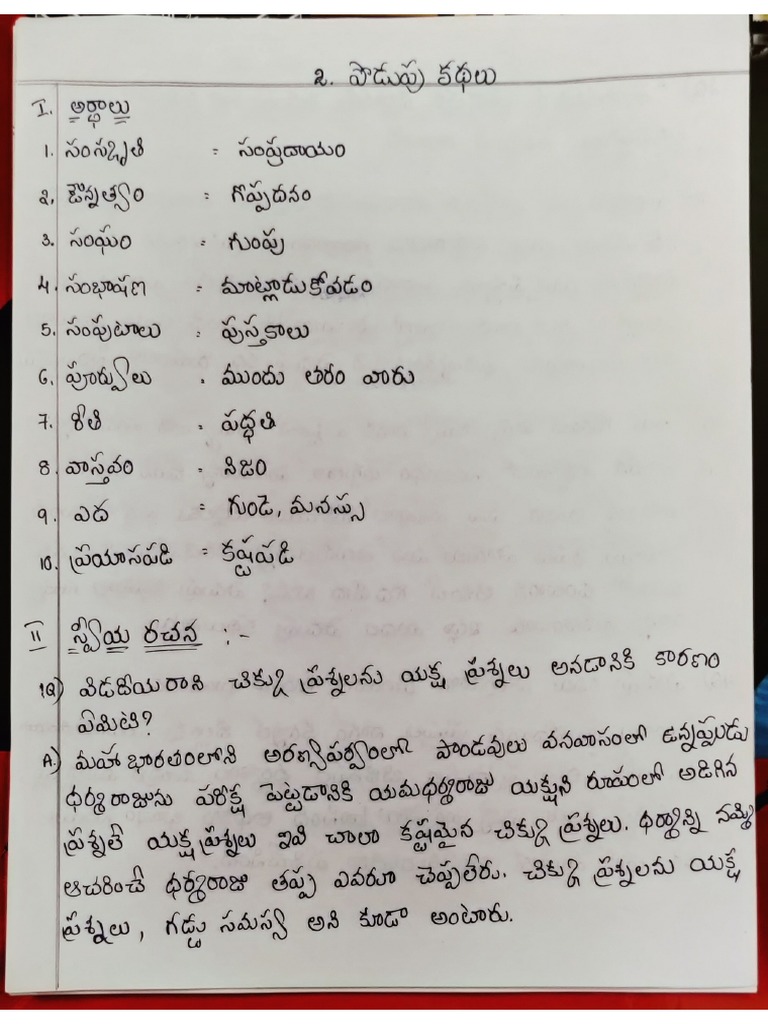 2. పొడుపు కథలు
I. అర్థాలు
1. సంస్కృతి = సంప్రదాయం
2. ఔన్నత్యం = గొప్పదనం
3. సంఘం = గుంపు
4. సంభాషణ = మాట్లాడుకోవడం
5. సంపుటాలు = పుస్తకాలు
6. పూర్వులు = ముందు తరం వారు
7. రీతి = పద్ధతి
8. వాస్తవం = నిజం
9. ఎద = గుండె, మనస్సు
10. ప్రయాసపడి = కష్టపడి
II స్వీయ రచన :-
1Q) విడదీయరాని చిక్కు ప్రశ్నలను యక్ష ప్రశ్నలు అనడానికి కారణం
ఏమిటి?
A.) మహాభారతంలోని అరణ్యపర్వంలో పాండవులు వనవాసంలో ఉన్నప్పుడు
ధర్మరాజును పరీక్ష పెట్టడానికి యమధర్మరాజు యక్షుని రూపంలో అడిగిన
ప్రశ్నలే యక్ష ప్రశ్నలు ఇవి చాలా కష్టమైన చిక్కు ప్రశ్నలు. ధర్మాన్ని నమ్మి
ఆచరించే ధర్మరాజు తప్ప ఎవరూ చెప్పలేరు. చిక్కు ప్రశ్నలను యక్ష
ప్రశ్నలు, గడ్డు సమస్య అని కూడా అంటారు.